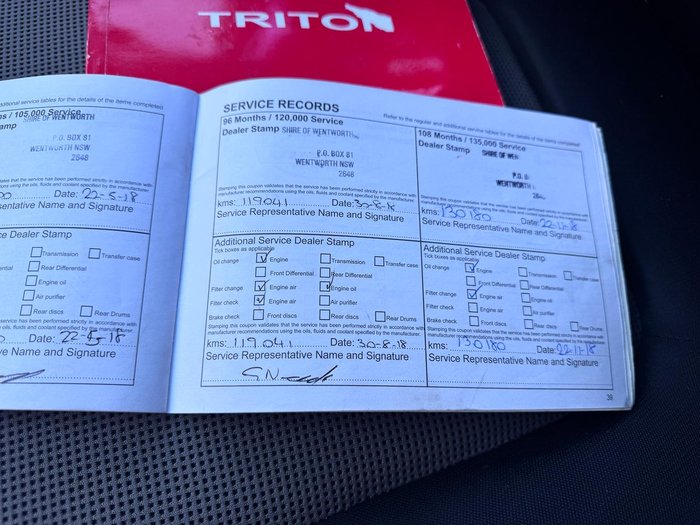 TRITON
additional service tables for the details of the items completed
hs / 105,000 Service
SHIRE OF WENTWORTH
amp
P.O. BOX 81
WENTWORTH NSW
2648
has been performed strictly in accordance with
ns using the oils, fluids and coolant specified by the manufacturer.
Date: 22-5-18
sentative Name and Signature
ce Dealer Stamp
Engine
Transmission
Transfer case
Rear Differential
Engine oil
Air purifier
Rear discs
Rear Drums
service has been performed strictly in accordance with
Date: 22-5-18
ve Name and Signature
SERVICE RECORDS
Refer to the regular and additional service tables for the details of the items completed
96 Months / 120,000 Service
Dealer Stamp SHIRE OF WENTWORTH
P.O. BOX 81
WENTWORTH NSW
2648
Stamping this coupon validates that the service has been performed strictly in accordance with
manufacturer recommendations using the oils, fluids and coolant specified by the manufacturer.
kms: 119041 Date: 30-8-18
Service Representative Name and Signature
Additional Service Dealer Stamp
Tick boxes as applicable
Oil change Engine Transmission Transfer case
Front Differential Rear Differential
Filter change Engine air Engine oil
Filter check Engine air Air purifier
Brake check Front discs Rear discs Rear Drums
Stamping this coupon validates that the service has been performed strictly in accordance with
manufacturer recommendations using the oils, fluids and coolant specified by the manufacturer.
kms: 119041 Date: 30-8-18
Service Representative Name and Signature
108 Months / 135,000 Service
Dealer Stamp SHIRE OF WEN
P.O. B
WENTWORTH
264
kms: 130180 Date: 22-11-18
Service Representative Name and Signature
Additional Service Dealer Stamp
Tick boxes as applicable
Oil change Engine Transmission Transfer case
Front Differential Rear Differential
Filter change Engine air Engine oil
Filter check Engine air Air purifier
Brake check Front discs Rear discs Rear Drums
Stamping this coupon validates that the service has been performed strictly in accordance with
manufacturer recommendations using the oils, fluids and coolant specified by the manufacturer.
kms: 130180 Date: 22-11-18
Service Representative Name and Signature
39